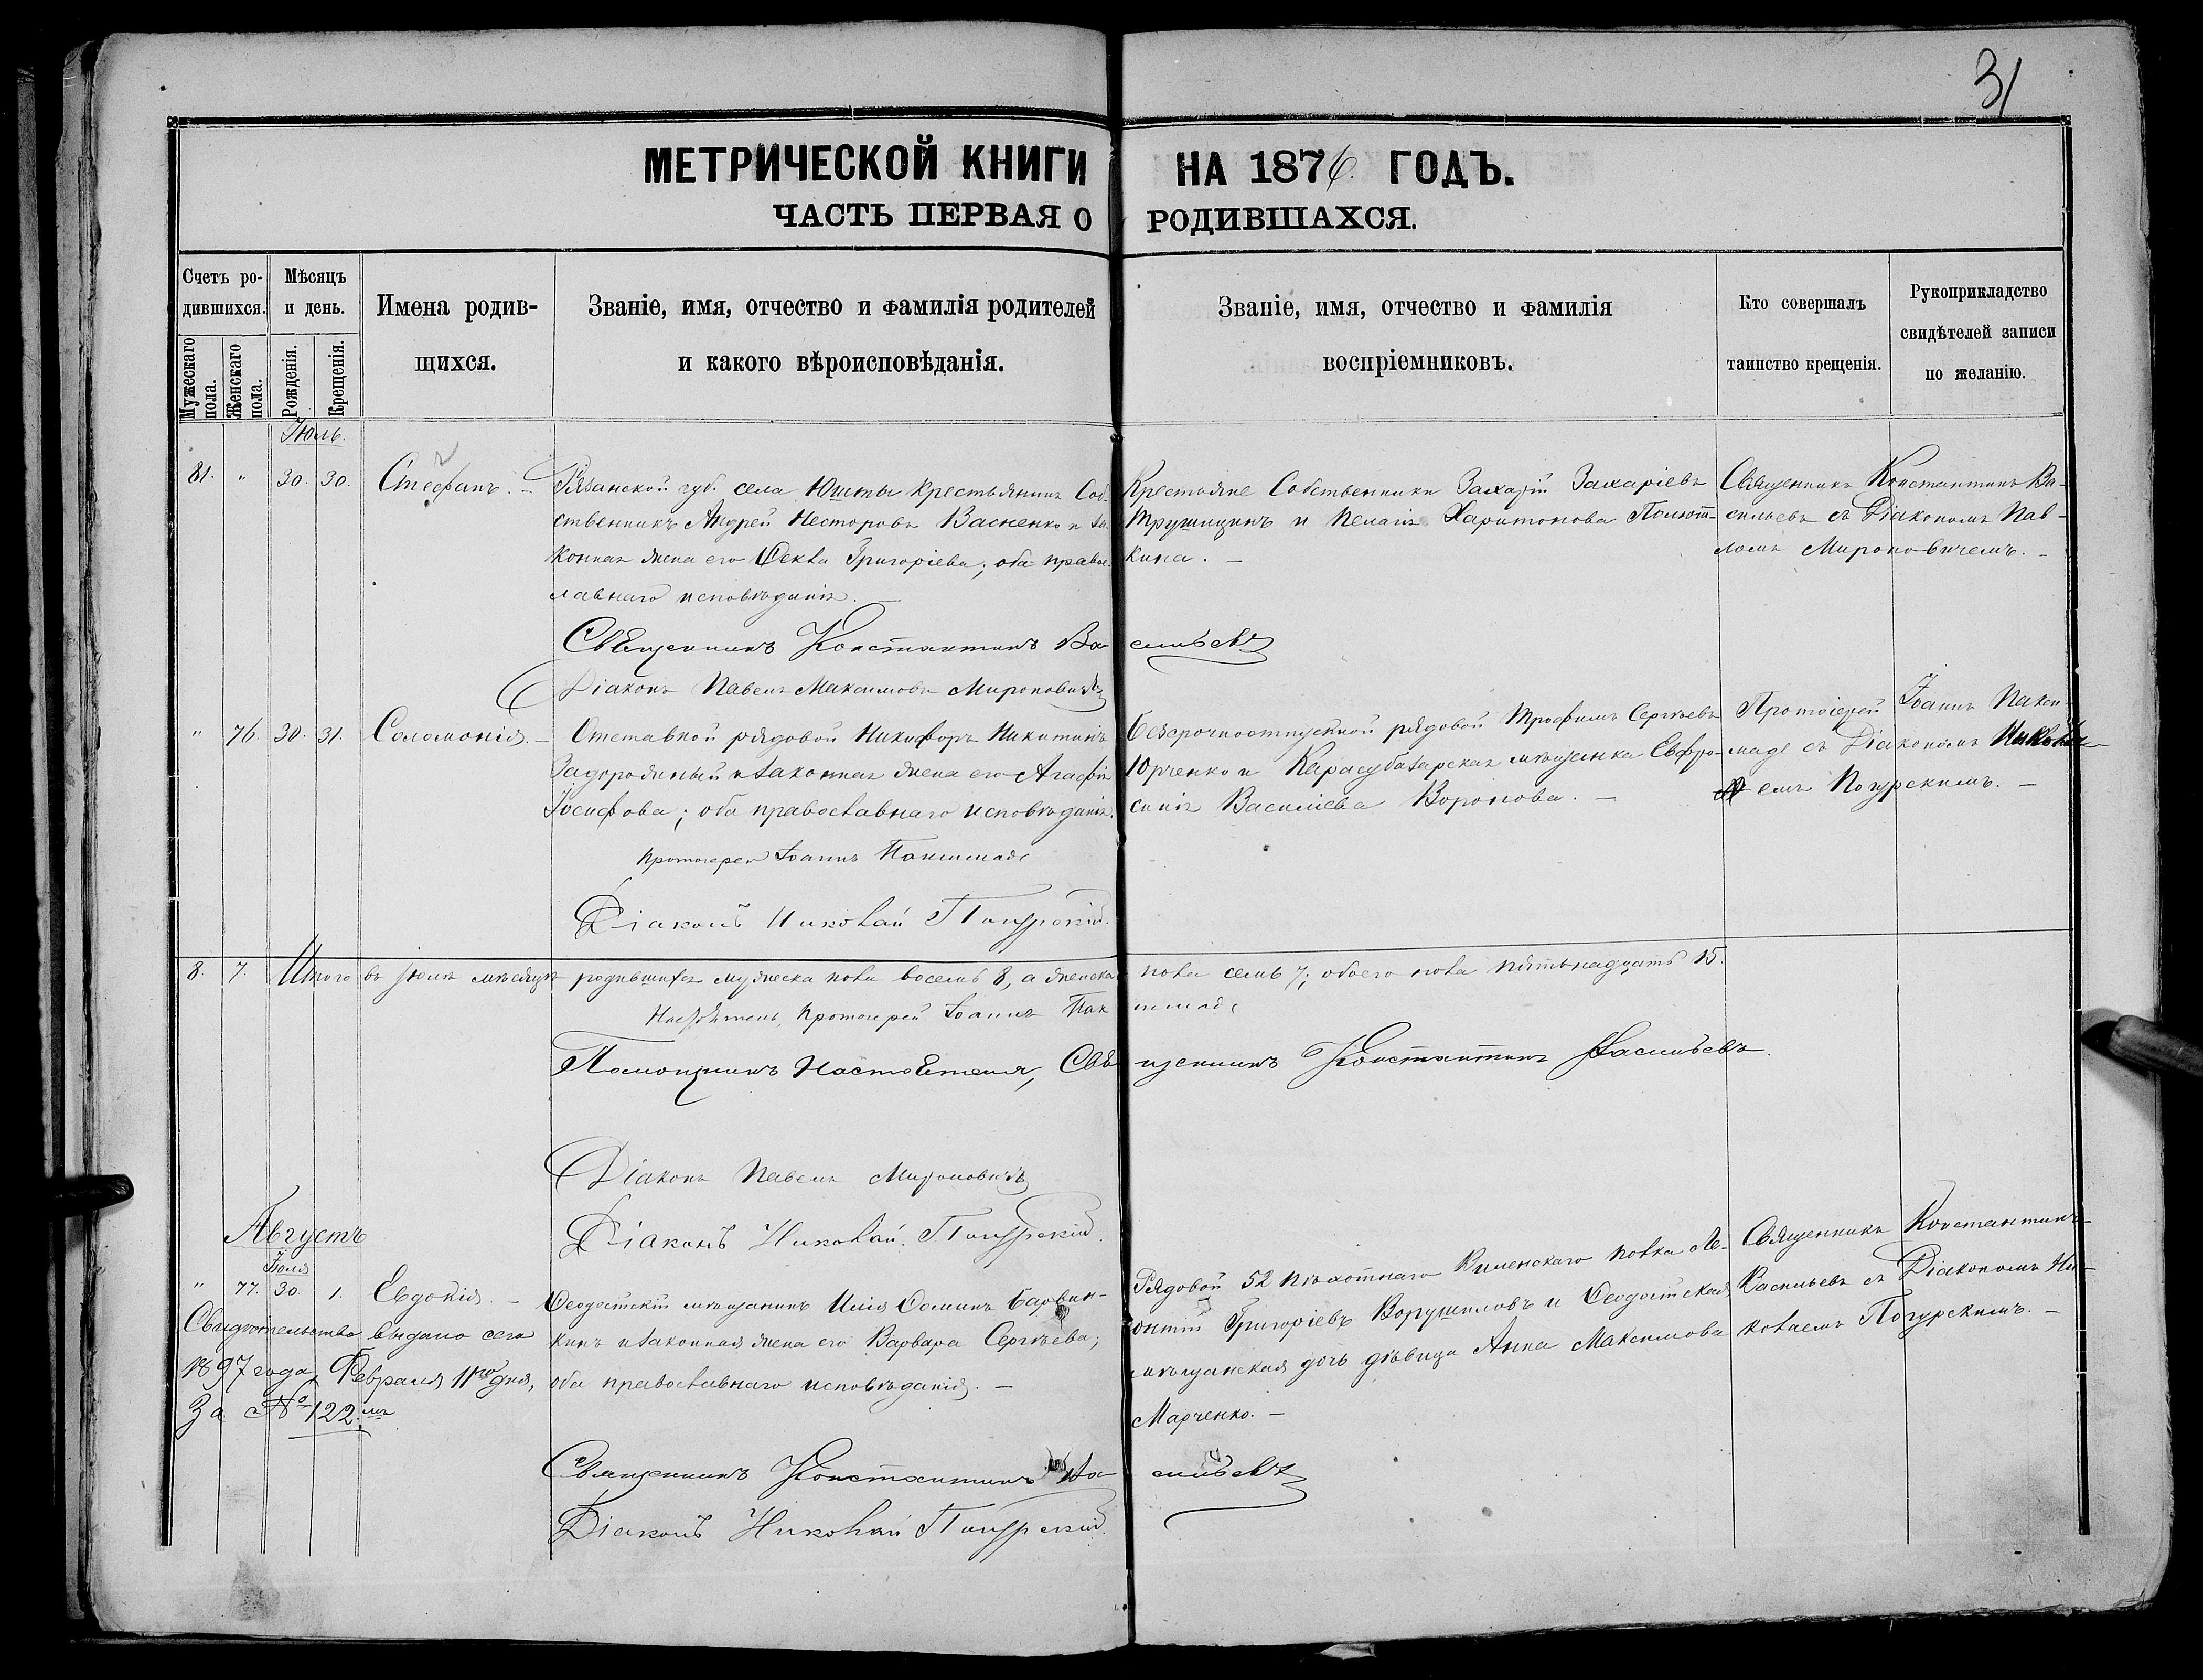 31
МЕТРИЧЕСКОЙ КНИГИ НА 1876 ГОДЪ.
ЧАСТЬ ПЕРВАЯ О РОДИВШАХСЯ.
Счетъ ро-
дившихся.
Мужескаго пола.
Женскаго пола.
Мѣсяцъ
и день.
Рожденія.
Крещенія.
Имена родив-
щихся.
Званіе, имя, отчество и фамилія родителей
и какого вѣроисповѣданія.
Званіе, имя, отчество и фамилія
воспріемниковъ.
Кто совершалъ
таинство крещенія.
Рукоприкладство
свидѣтелей записи
по желанію.
Іюль.
81. " 30. 30. Стефанъ. –
Рязанской губ. села Юшты крестьянинъ Соб-
ственникъ Андрей Несторовъ Васненко и за-
конная жена его Ѳекла Григоріева; оба правос-
лавнаго исповѣданія.
Крестьяне Собственники Захарій Захаріевъ
Трушицинъ и Пелагія Харитонова Полют-
кина. –
Священникъ Константинъ Ва-
сильевъ съ Діакономъ Пав-
ломъ Мироновичемъ. –
Священникъ Константинъ Васильевъ
Діаконъ Павелъ Максимовъ Мироновичъ
" 76. 30. 31. Соломонія. –
Отставной рядовой Никифоръ Никитинъ
Задорожный и законная жена его Агафія
Іосифова; оба православнаго исповѣданія.
Безсрочноотпускной рядовой Трофимъ Сергѣевъ
Юрченко и Карасубазарская мѣщанка Евфро-
синія Василіева Воронова. –
Протоіерей Іоаннъ Пакси-
маде съ Діакономъ Никола-
емъ Погурскимъ. –
Протоіерей Іоаннъ Паксимаде
Діаконъ Николай Погурскій.
8. 7. Итого въ Іюлѣ мѣсяцѣ родившихся мужеска пола восемь 8, а женска пола семь 7; обоего пола пятьнадцать 15.
Настоятель, Протоіерей Іоаннъ Паксимаде
Помощникъ Настоятеля, Священникъ Константинъ Васильевъ.
Діаконъ Павелъ Мироновичъ
Діаконъ Николай Погурскій.
Августъ
Іюля
" 77. 30. 1. Евдокія. –
Ѳеодосійскій мѣщанинъ Илія Ѳоминъ Барвин-
кинъ и законная жена его Варвара Сергѣева;
оба православнаго исповѣданія. –
Рядовой 52 пѣхотнаго Виленскаго полка Ле-
онтій Григоріевъ Ворушиловъ и Ѳеодосійская
мѣщанская дочь дѣвица Анна Максимова
Марченко. –
Священникъ Константинъ
Васильевъ съ Діакономъ Ни-
колаемъ Погурскимъ. –
Свидѣтельство выдано сего
1897 года, Февраля 11го дня,
За № 122.мъ
Священникъ Константинъ Васильевъ
Діаконъ Николай Погурскій.